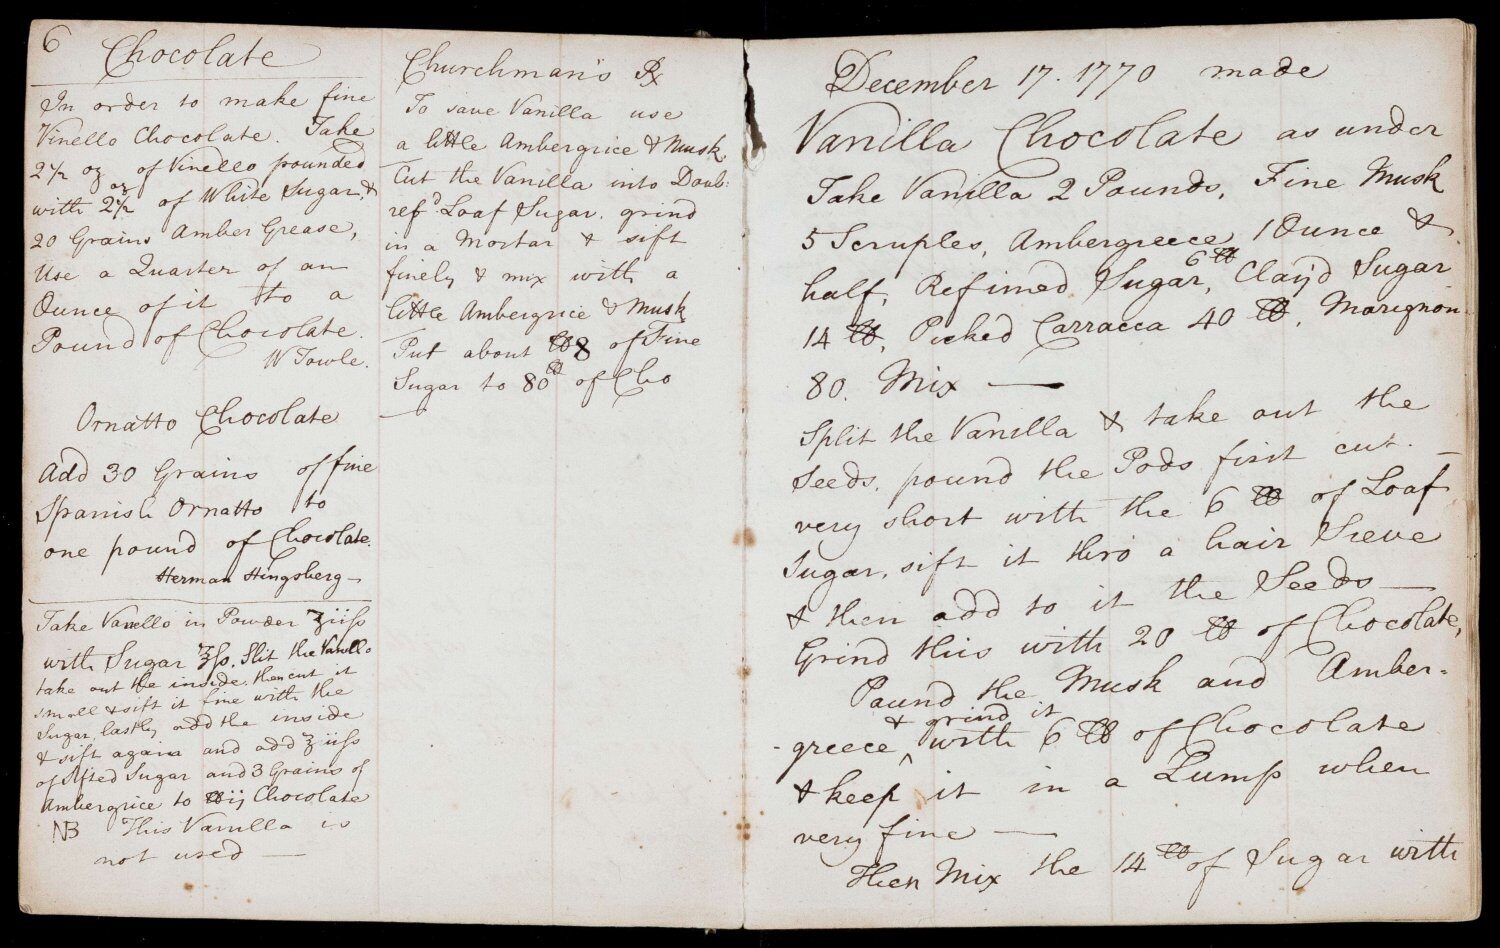 6
Chocolate
In order to make fine
Vinello Chocolate. Take
2 1/2 oz of Vinello pounded
with 2 1/2 oz of White Sugar, &
20 Grains Amber Grease,
Use a Quarter of an
Ounce of it to a
Pound of Chocolate.
W Towle.
Ornatto Chocolate
Add 30 Grains of fine
Spanish Ornatto to
one pound of Chocolate.
Herman Hingsberg
Take Vanello in Powder ℥iiſs
with Sugar ℥ſs. Slit the Vanello
take out the inside then cut it
small & sift it fine with the
Sugar, lastly add the inside
& sift again and add ℥iiſs
of sifted Sugar and 3 Grains of
Ambergrice to ℔ij Chocolate
NB This Vanilla is
not used —
Churchman's ℞
To save Vanilla use
a little Ambergrice & Musk.
Cut the Vanilla into Doub:
refd Loaf Sugar. grind
in a Mortar & sift
finely & mix with a
little Ambergrice & Musk
Put about ℔8 of Fine
Sugar to 80 ℔ of Cho
December 17. 1770 made
Vanilla Chocolate as under
Take Vanilla 2 Pounds, Fine Musk
5 Scruples, Ambergreece 1 Ounce &
half, Refined Sugar, 6 ℔, Clay'd Sugar
14 ℔, Picked Carracca 40 ℔, Marignon
80. Mix —
Split the Vanilla & take out the
Seeds, pound the Pods first cut —
very short with the 6 ℔ of Loaf
Sugar, sift it thro a hair Sieve
& then add to it the Seeds —
Grind this with 20 ℔ of Chocolate,
Pound the Musk and Amber-
greece & grind it with 6 ℔ of Chocolate
& keep it in a Lump when
very fine —
Then Mix the 14 ℔ of Sugar with